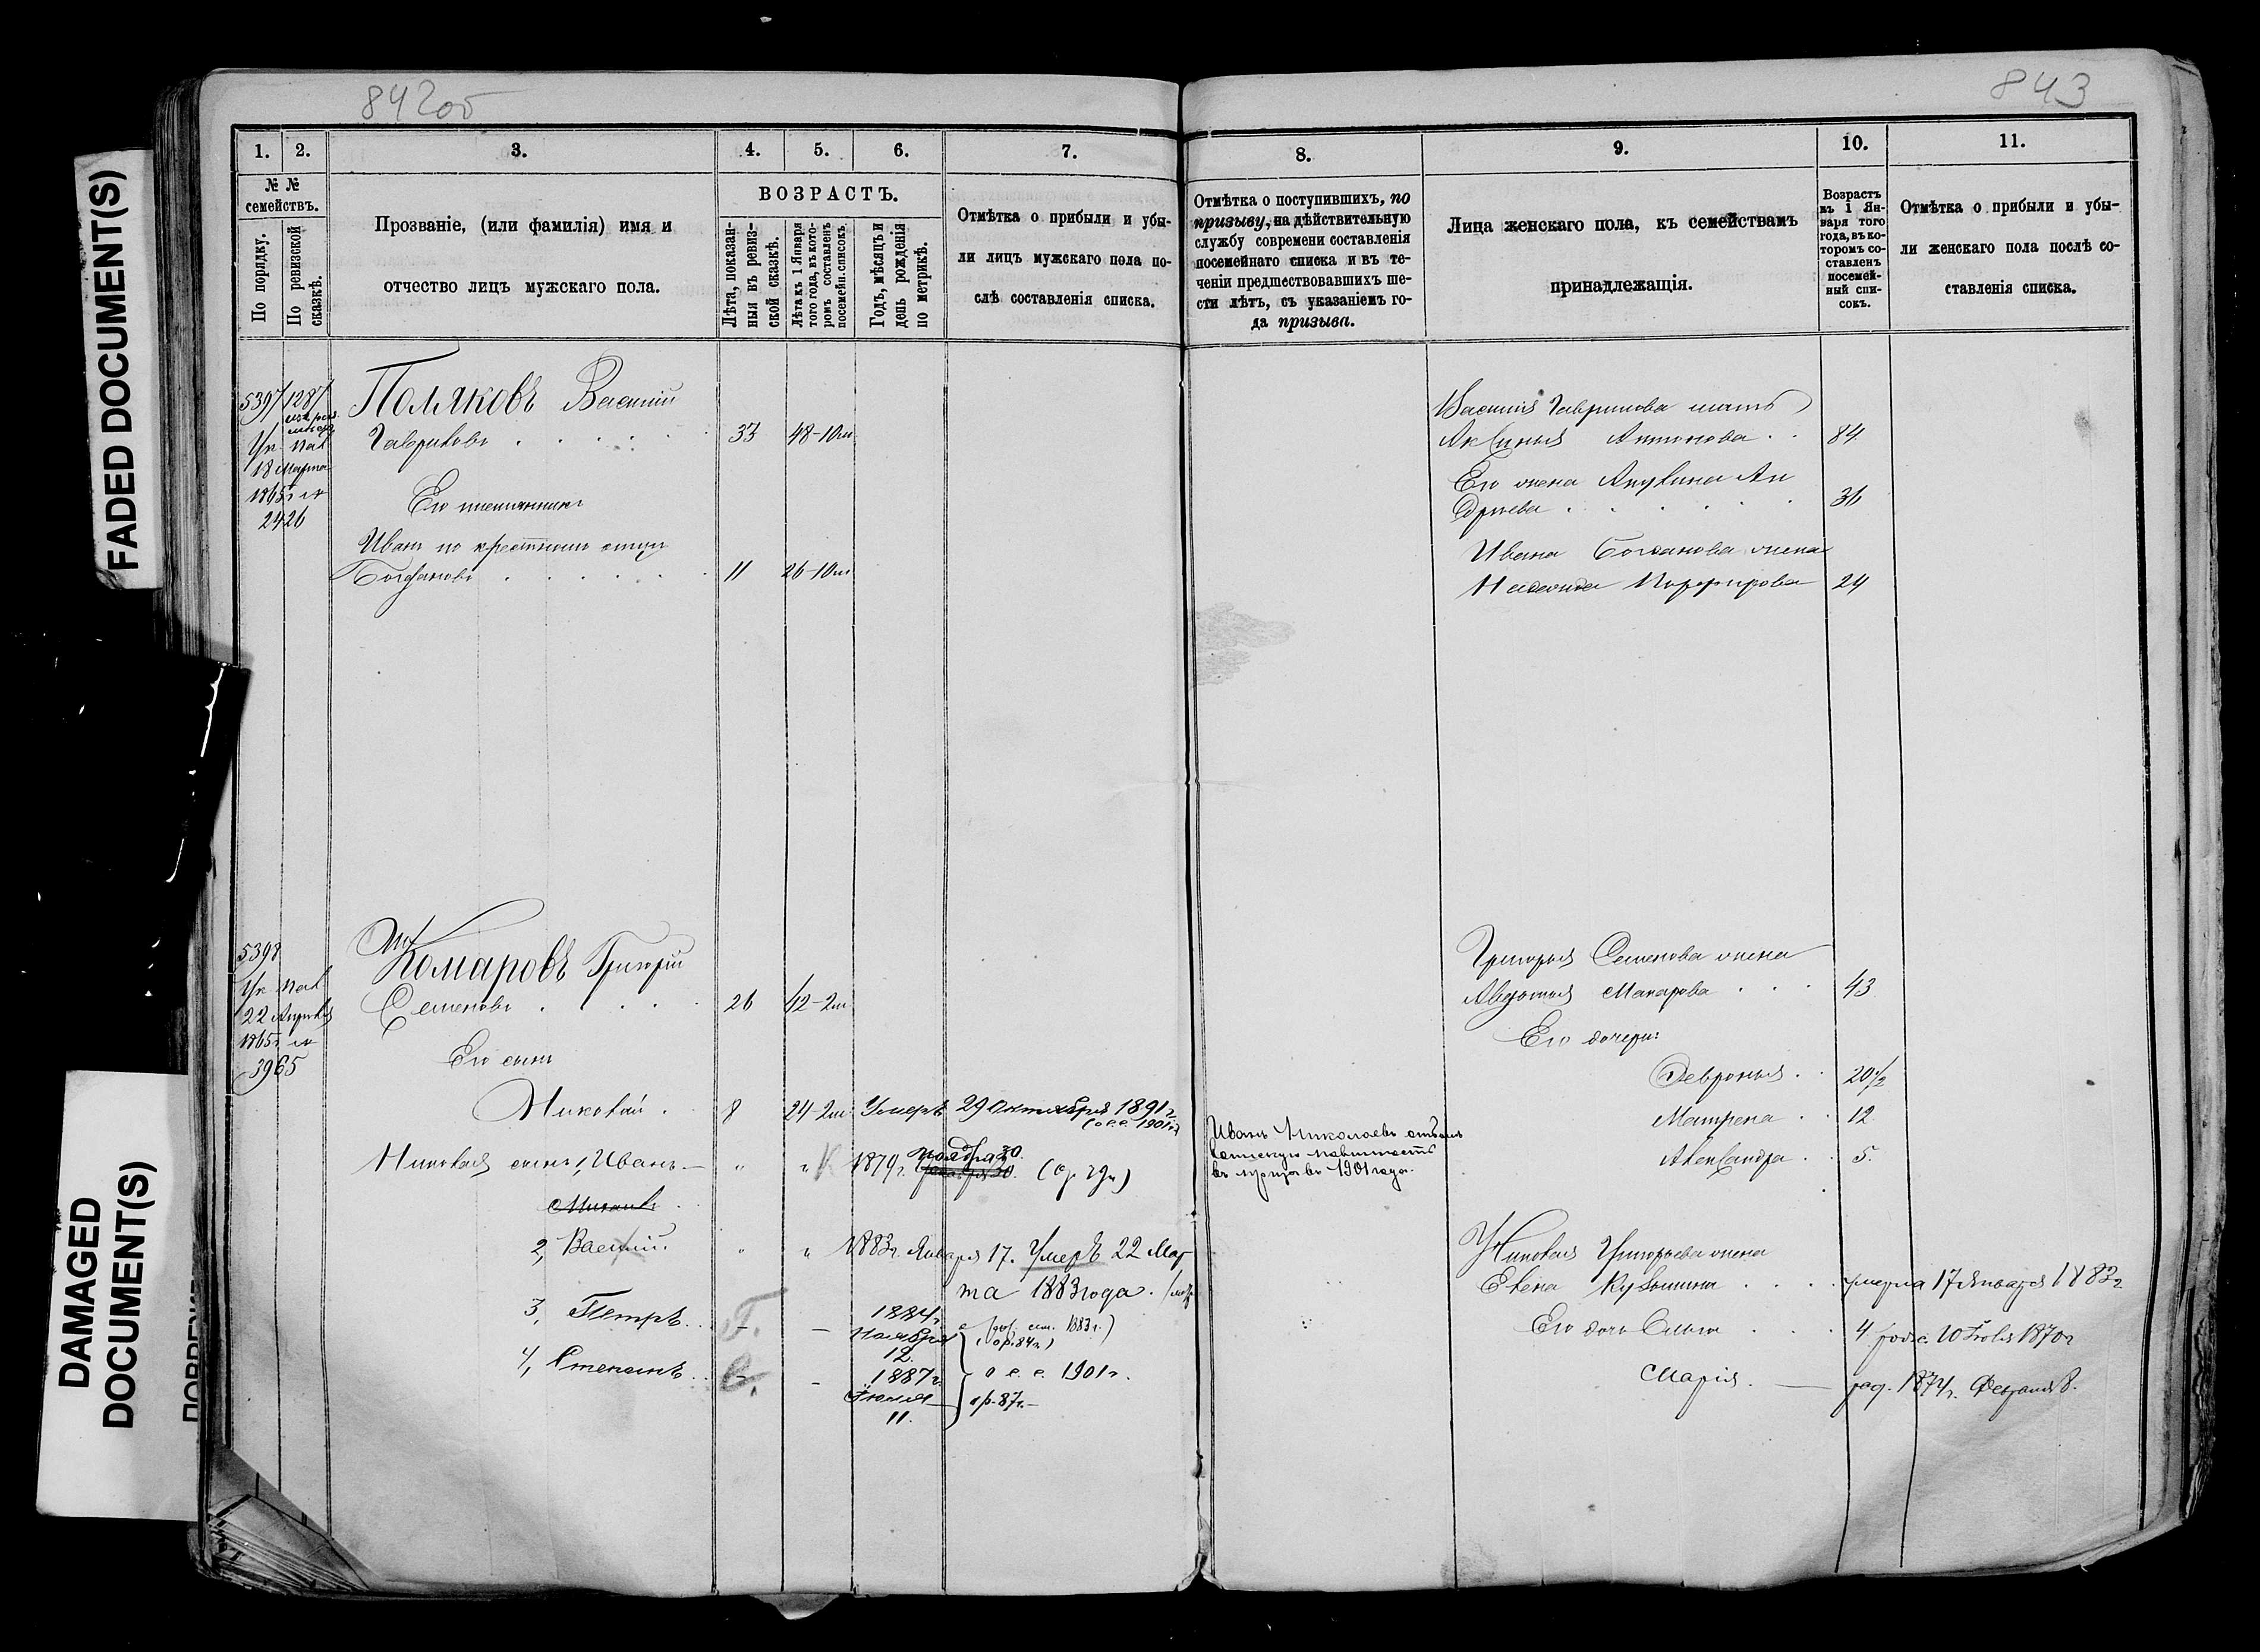 842об
843
FADED DOCUMENT(S)
DAMAGED
DOCUMENT(S)
1.
2.
3.
4.
5.
6.
7.
№ №
семействъ.
По порядку.
По ревизской
сказкѣ.
Прозваніе, (или фамилія) имя и
отчество лицъ мужскаго пола.
ВОЗРАСТЪ.
Лѣта, показан-
ныя въ ревиз-
ской сказкѣ.
Лѣта къ 1 Января
того года, въ кото-
ромъ составленъ
посемейн. списокъ.
Годъ, мѣсяцъ и
день рожденія
по метрикѣ.
Отмѣтка о прибыли и убы-
ли лицъ мужскаго пола по-
слѣ составленія списка.
5397
1287
Поляковъ Василій
Гавриловъ
33
48-10м
18 Марта
1865 г. №
2426
Его племянникъ
Иванъ по крестному отцу
Богдановъ
11
26-10м
5398
Комаровъ Григорій
22 Апрѣля
1865 г. №
3965
Семеновъ
26
42-2м
Его сынъ
Николай
8
24-2м
Умеръ 29 Октября 1891 г.
(о с. с. 1901 г.)
Николая сынъ 1, Иванъ
1879 г. Ноября 30.
2, Василій
1883 г. Января 17. Умеръ 22 Мар
та 1883 года.
3, Петръ
1884 г.
Ноября
12.
(ор. 84 г.)
4, Степанъ
1887 г.
Іюля
11.
о с. с. 1901 г.
ор. 87 г.
8.
9.
10.
11.
Отмѣтка о поступившихъ, по
призыву, на дѣйствительную
службу современи составленія
посемейнаго списка и въ те-
ченіи предшествовавшихъ ше-
сти лѣтъ, съ указаніемъ го-
да призыва.
Лица женскаго пола, къ семействамъ
принадлежащія.
Возрастъ
къ 1 Ян-
варя того
года, въ ко-
торомъ со-
ставленъ
посемей-
ный спи-
сокъ.
Отмѣтка о прибыли и убы-
ли женскаго пола послѣ со-
ставленія списка.
Василія Гаврилова мать
Аксинья Антонова
84
Его жена Акулина Ан
дреева
36
Ивана Богданова жена
Надежда Порфирова
24
Григорья Семенова жена
Авдотья Макарова
43
Его дочери:
Февронья
20½
Матрена
12
Александра
5.
Иванъ Николаевъ отбылъ
воинскую повинность
въ призывъ 1901 года.
Николая Григорьева жена
Елена Кузьмина
умерла 17 Января 1882 г.
Его дочь Ольга
4
родс. 10 Іюля 1870 г
Марія
род. 1874 г. Февраля 8.